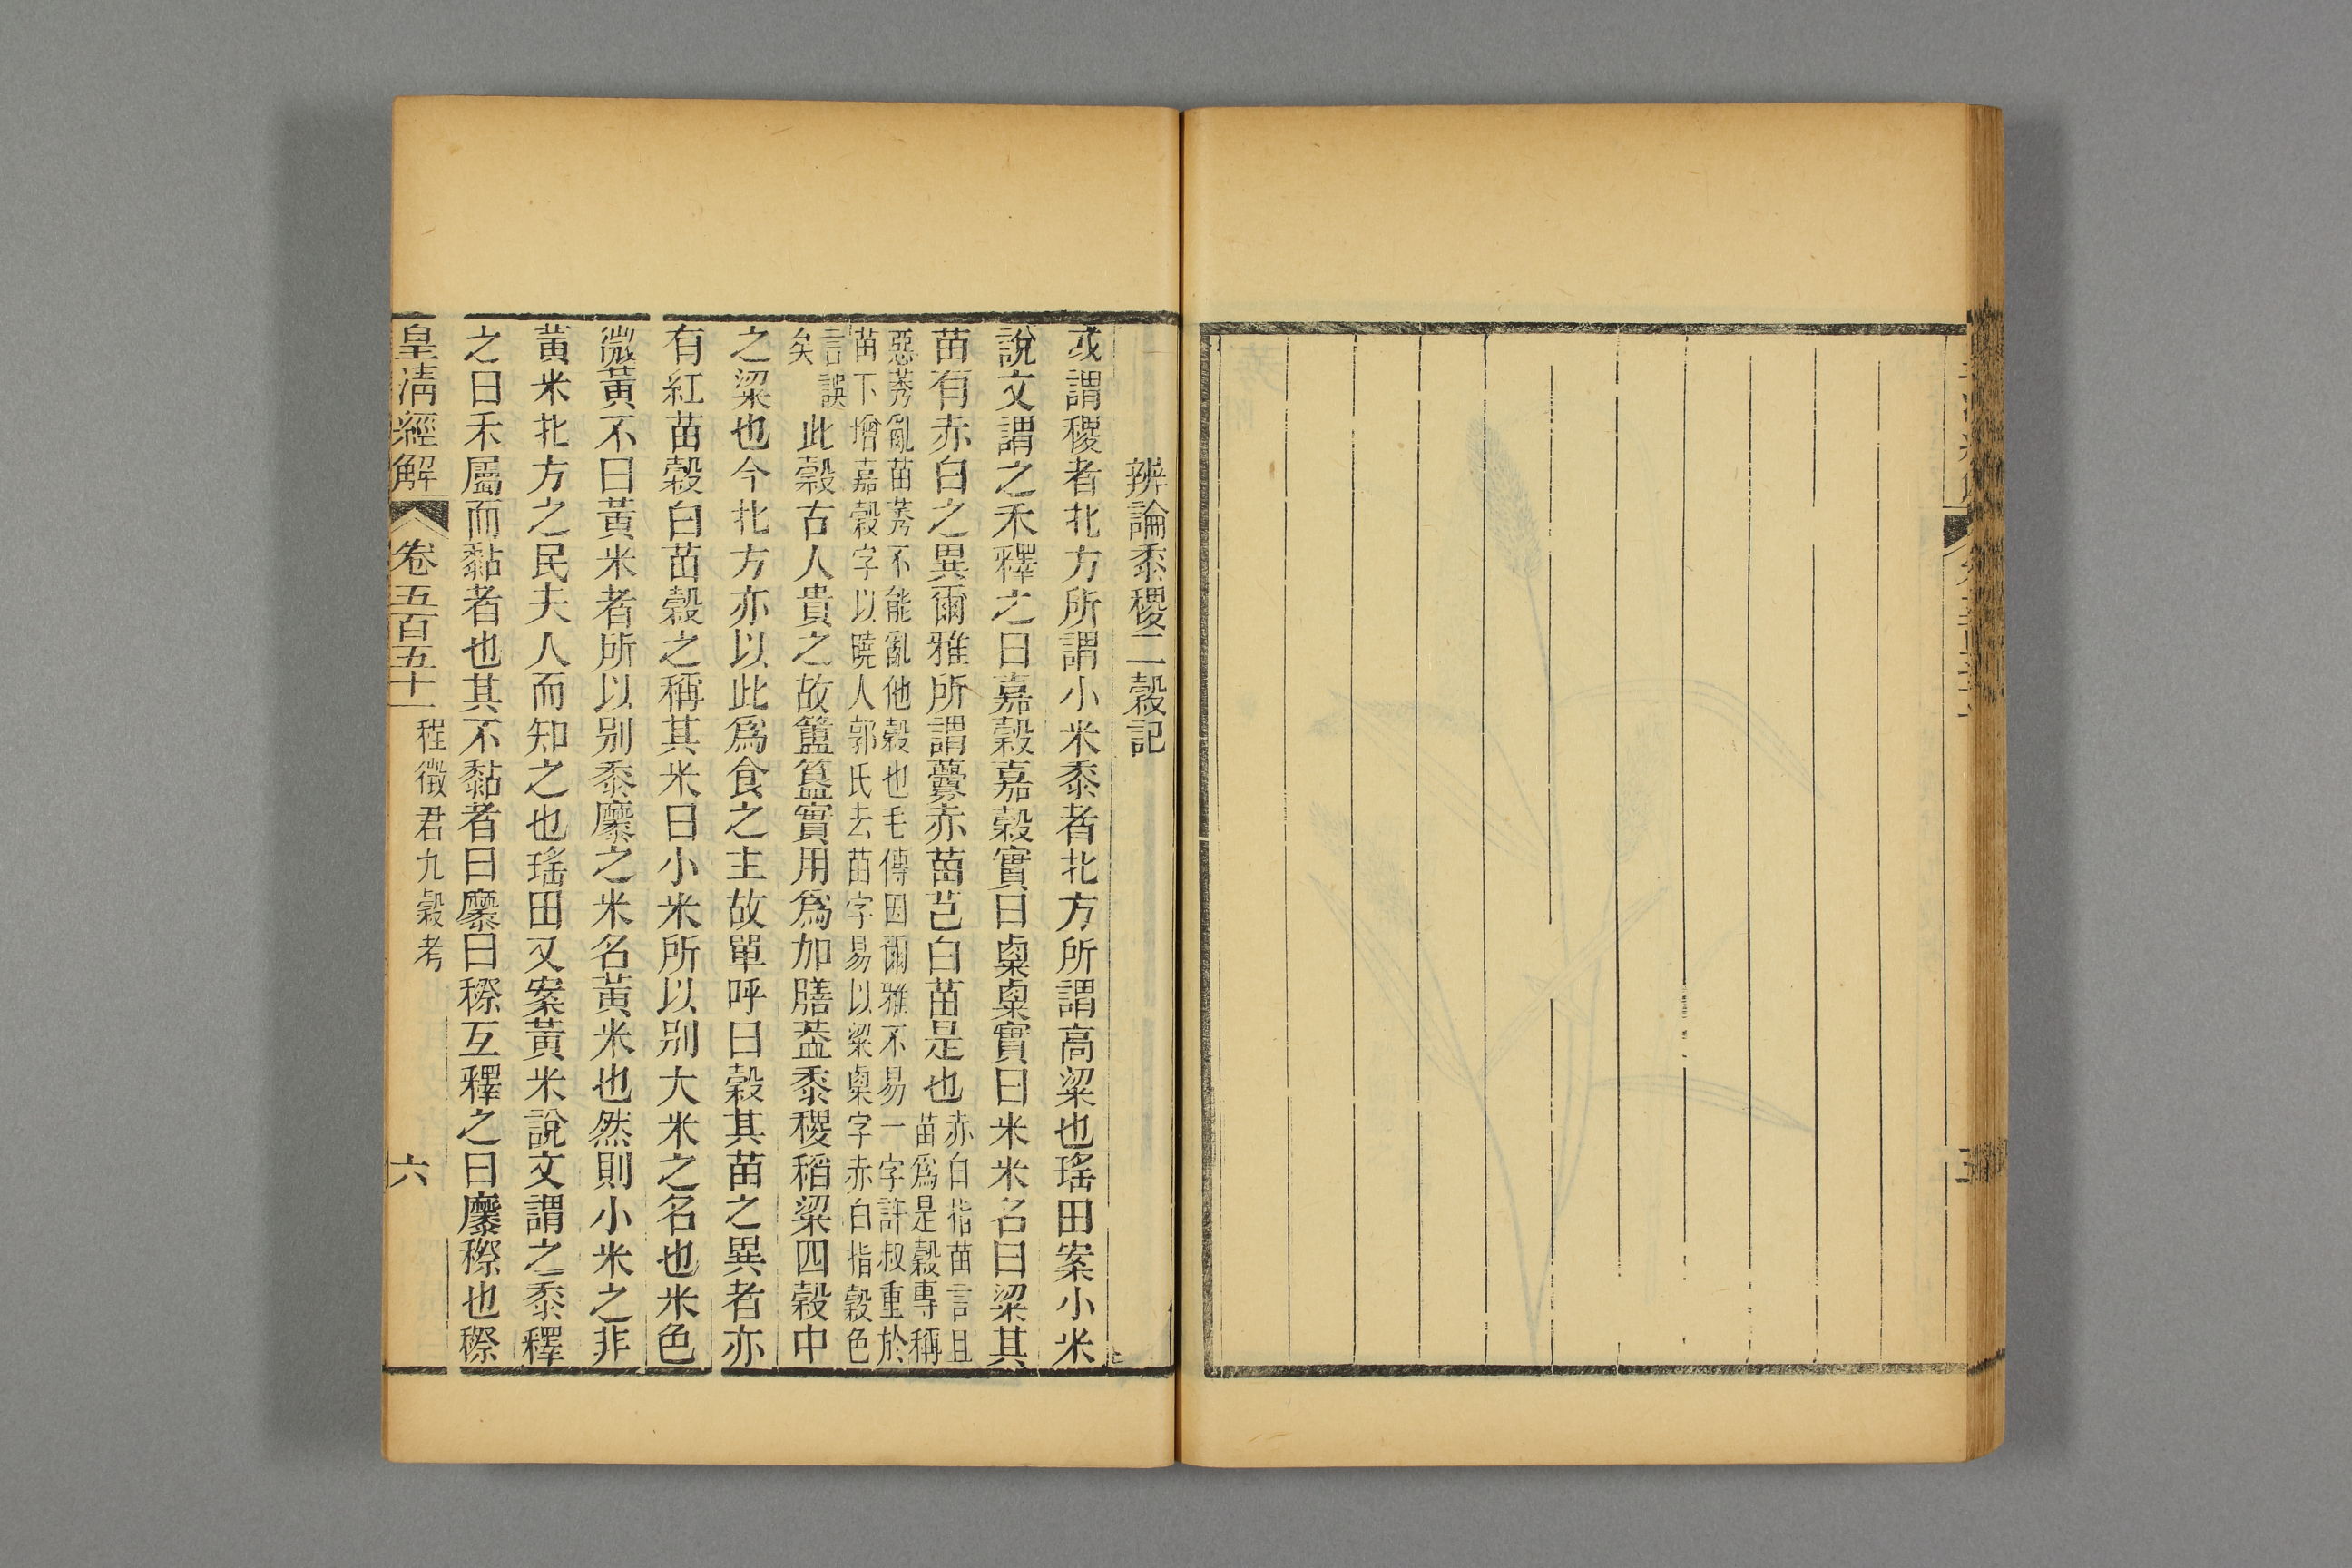 辨論黍稷二穀記
或謂稷者北方所謂小米黍者北方所謂高粱也瑤田案小米
說文謂之禾釋之曰嘉穀嘉穀實曰㮚㮚實曰米米名曰粱其
苗有赤白之異爾雅所謂虋赤苗芑白苗是也赤白指苗言且苗爲是穀專稱
惡莠亂苗莠不能亂他穀也毛傳因爾雅不易一字許叔重於
苗下增嘉穀字以曉人郭氏去苗字易以粱㮚字赤白指穀色
言誤矣此穀古人貴之故簠簋實用爲加膳葢黍稷稻粱四穀中
之粱也今北方亦以此爲食之主故單呼曰穀其苗之異者亦
有紅苗穀白苗穀之稱其米曰小米所以别大米之名也米色
微黃不曰黃米者所以别黍穈之米名黃米也然則小米之非
黃米北方之民夫人而知之也瑤田又案黃米說文謂之黍釋
之曰禾屬而黏者也其不黏者曰穈曰穄互釋之曰穈穄也穄
皇清經解 卷五百五十一 程徵君九穀考 六